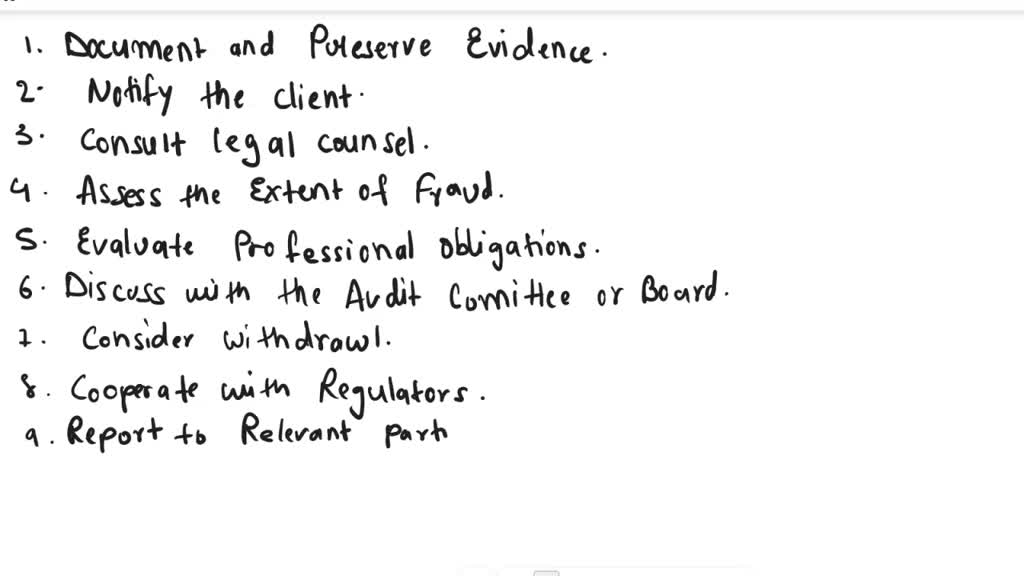 1. Document and Puleserve Evidence.
2. Notify the client.
3. Consult legal counsel.
4. Assess the Extent of Fraud.
5. Evaluate Professional obligations.
6. Discuss with the Audit Comittee or Board.
7. Consider withdrawl.
8. Cooperate with Regulators.
9. Report to Relevant part